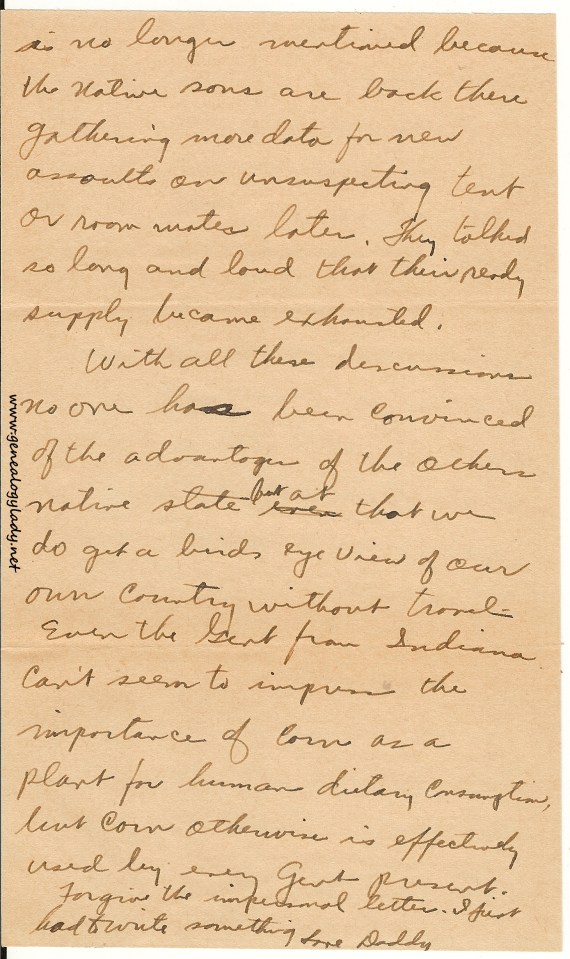 is no longer mentioned because
the native sons are back there
gathering more data for new
assaults on unsuspecting tent
or room mates later. They talked
so long and loud that their ready
supply became exhausted.
With all these discussions
no one has been convinced
of the advantages of the others
native state but at even that we
do get a birds eye view of our
own country without travel-
Even the Gent from Indiana
can't seem to impress the
importance of Corn as a
plant for human dietary consumption,
but Corn otherwise is effectively
used by every Gent present.
Forgive the impersonal letter. I just
had to write something Love Daddy
www.genealogylady.net